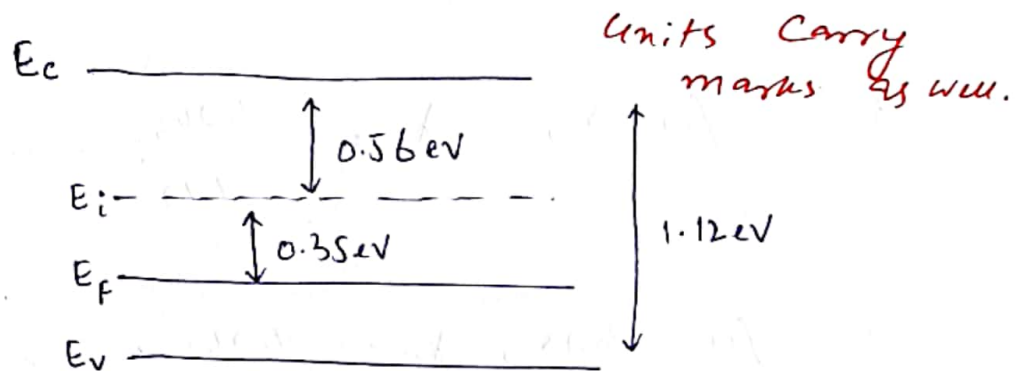 Units Carry
marks as well.
Ec
0.56 eV
Ei
0.35 eV
1.12 eV
EF
Ev